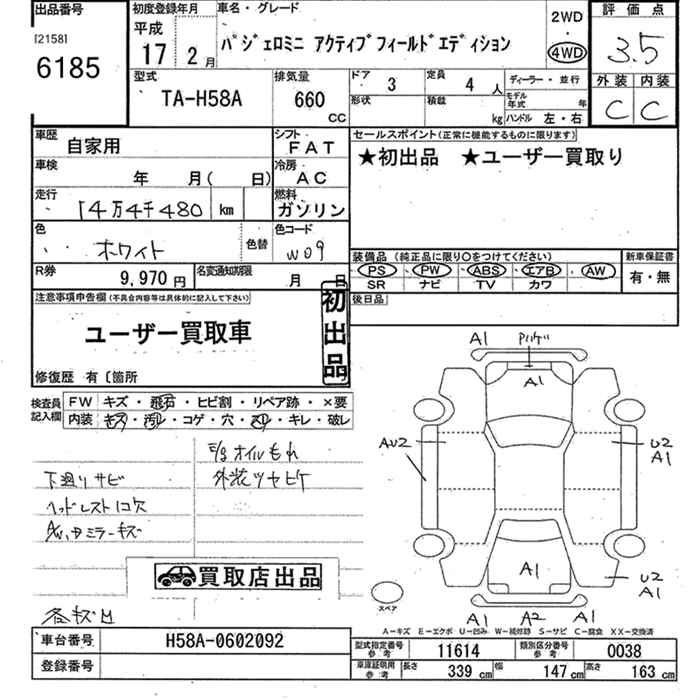 出品番号
[2158]
6185
初度登録年月
平成
17 2月
車名・グレード
パジェロミニ アクティブフィールドエディション
2WD
・
4WD
評価点
3.5
外装 内装
C C
型式
TA-H58A
排気量
660
CC
ドア 3
形状
定員 4 人
積載 kg
ディーラー・並行
モデル年式 年
ハンドル 左・右
車歴 自家用
シフト FAT
車検 年 月( 日)
冷房 AC
走行 14万4千480 km
燃料 ガソリン
色 ホワイト
色替
色コード W09
R券 9,970円
名変通知期限 月 日
セールスポイント(正常に機能するものに限ります)
★初出品 ★ユーザー買取り
装備品 (純正品に限り○をつけてください)
PS・PW・ABS・エアB・AW
SR ナビ TV カワ
新車保証書
有・無
後日品
注意事項申告欄(不具合内容等は具体的に記入して下さい)
ユーザー買取車
初出品
修復歴 有〔箇所
検査員記入欄
FW キズ・飛石・ヒビ割・リペア跡・×要
内装 キズ・汚レ・コゲ・穴・スレ・キレ・破レ
オイルもれ
下廻りサビ
外装ツヤビケ
ヘッドレスト1コ欠
ミラーキズ
買取店出品
A1
A1
AU2
U2
A1
A1
U2
A1
A1 A2 A1
スペア
A−キズ E−エクボ U−凹み W−補修跡 S−サビ C−腐食 XX−交換済
車台番号 H58A-0602092
登録番号
型式指定番号 参考 11614
類別区分番号 参考 0038
車庫証明用 参考 長さ 339 cm 幅 147 cm 高さ 163 cm